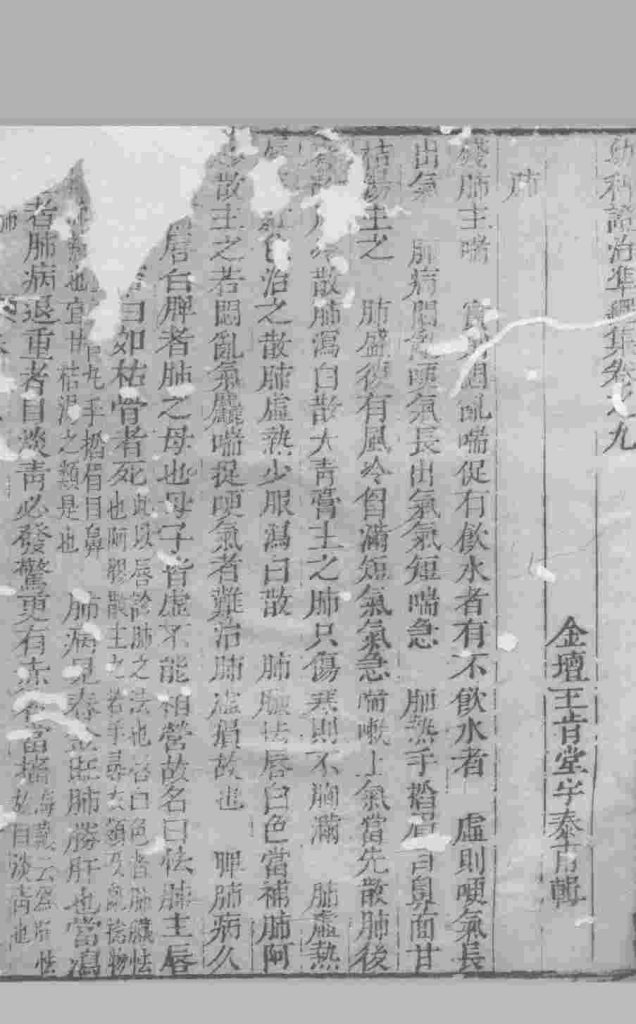 幼科證治準繩集卷之九
金壇王肯堂宇泰甫輯
肺
錢肺主喘 實則悶亂喘促有飲水者有不飲水者 虛則哽氣長
出氣 肺病悶亂哽氣長出氣氣短喘急 肺熱手搯眉目鼻面甘
桔湯主之 肺盛復有風冷胷滿短氣氣急喘嗽上氣當先散肺後
散肺瀉白散大青膏主之肺只傷寒則不胸滿 肺虛熱
唇 色治之散肺虛熱少服瀉白散 肺臟怯唇白色當補肺阿
散主之若悶亂氣麤喘促哽氣者難治肺虛損故也 脾肺病久
唇白脾者肺之母也母子皆虛不能相營故名曰怯肺主唇
白如枯骨者死
此以唇診肺之法也 白色者肺臟怯
也阿膠散主之若手尋衣領及亂捻物
也宜甘桔湯之類是也
手搯眉目鼻
肺病見春金旺肺勝肝也當瀉
者肺病退重者目淡青必發驚更有赤者當搐
海藏云為肝怯
故目淡青也